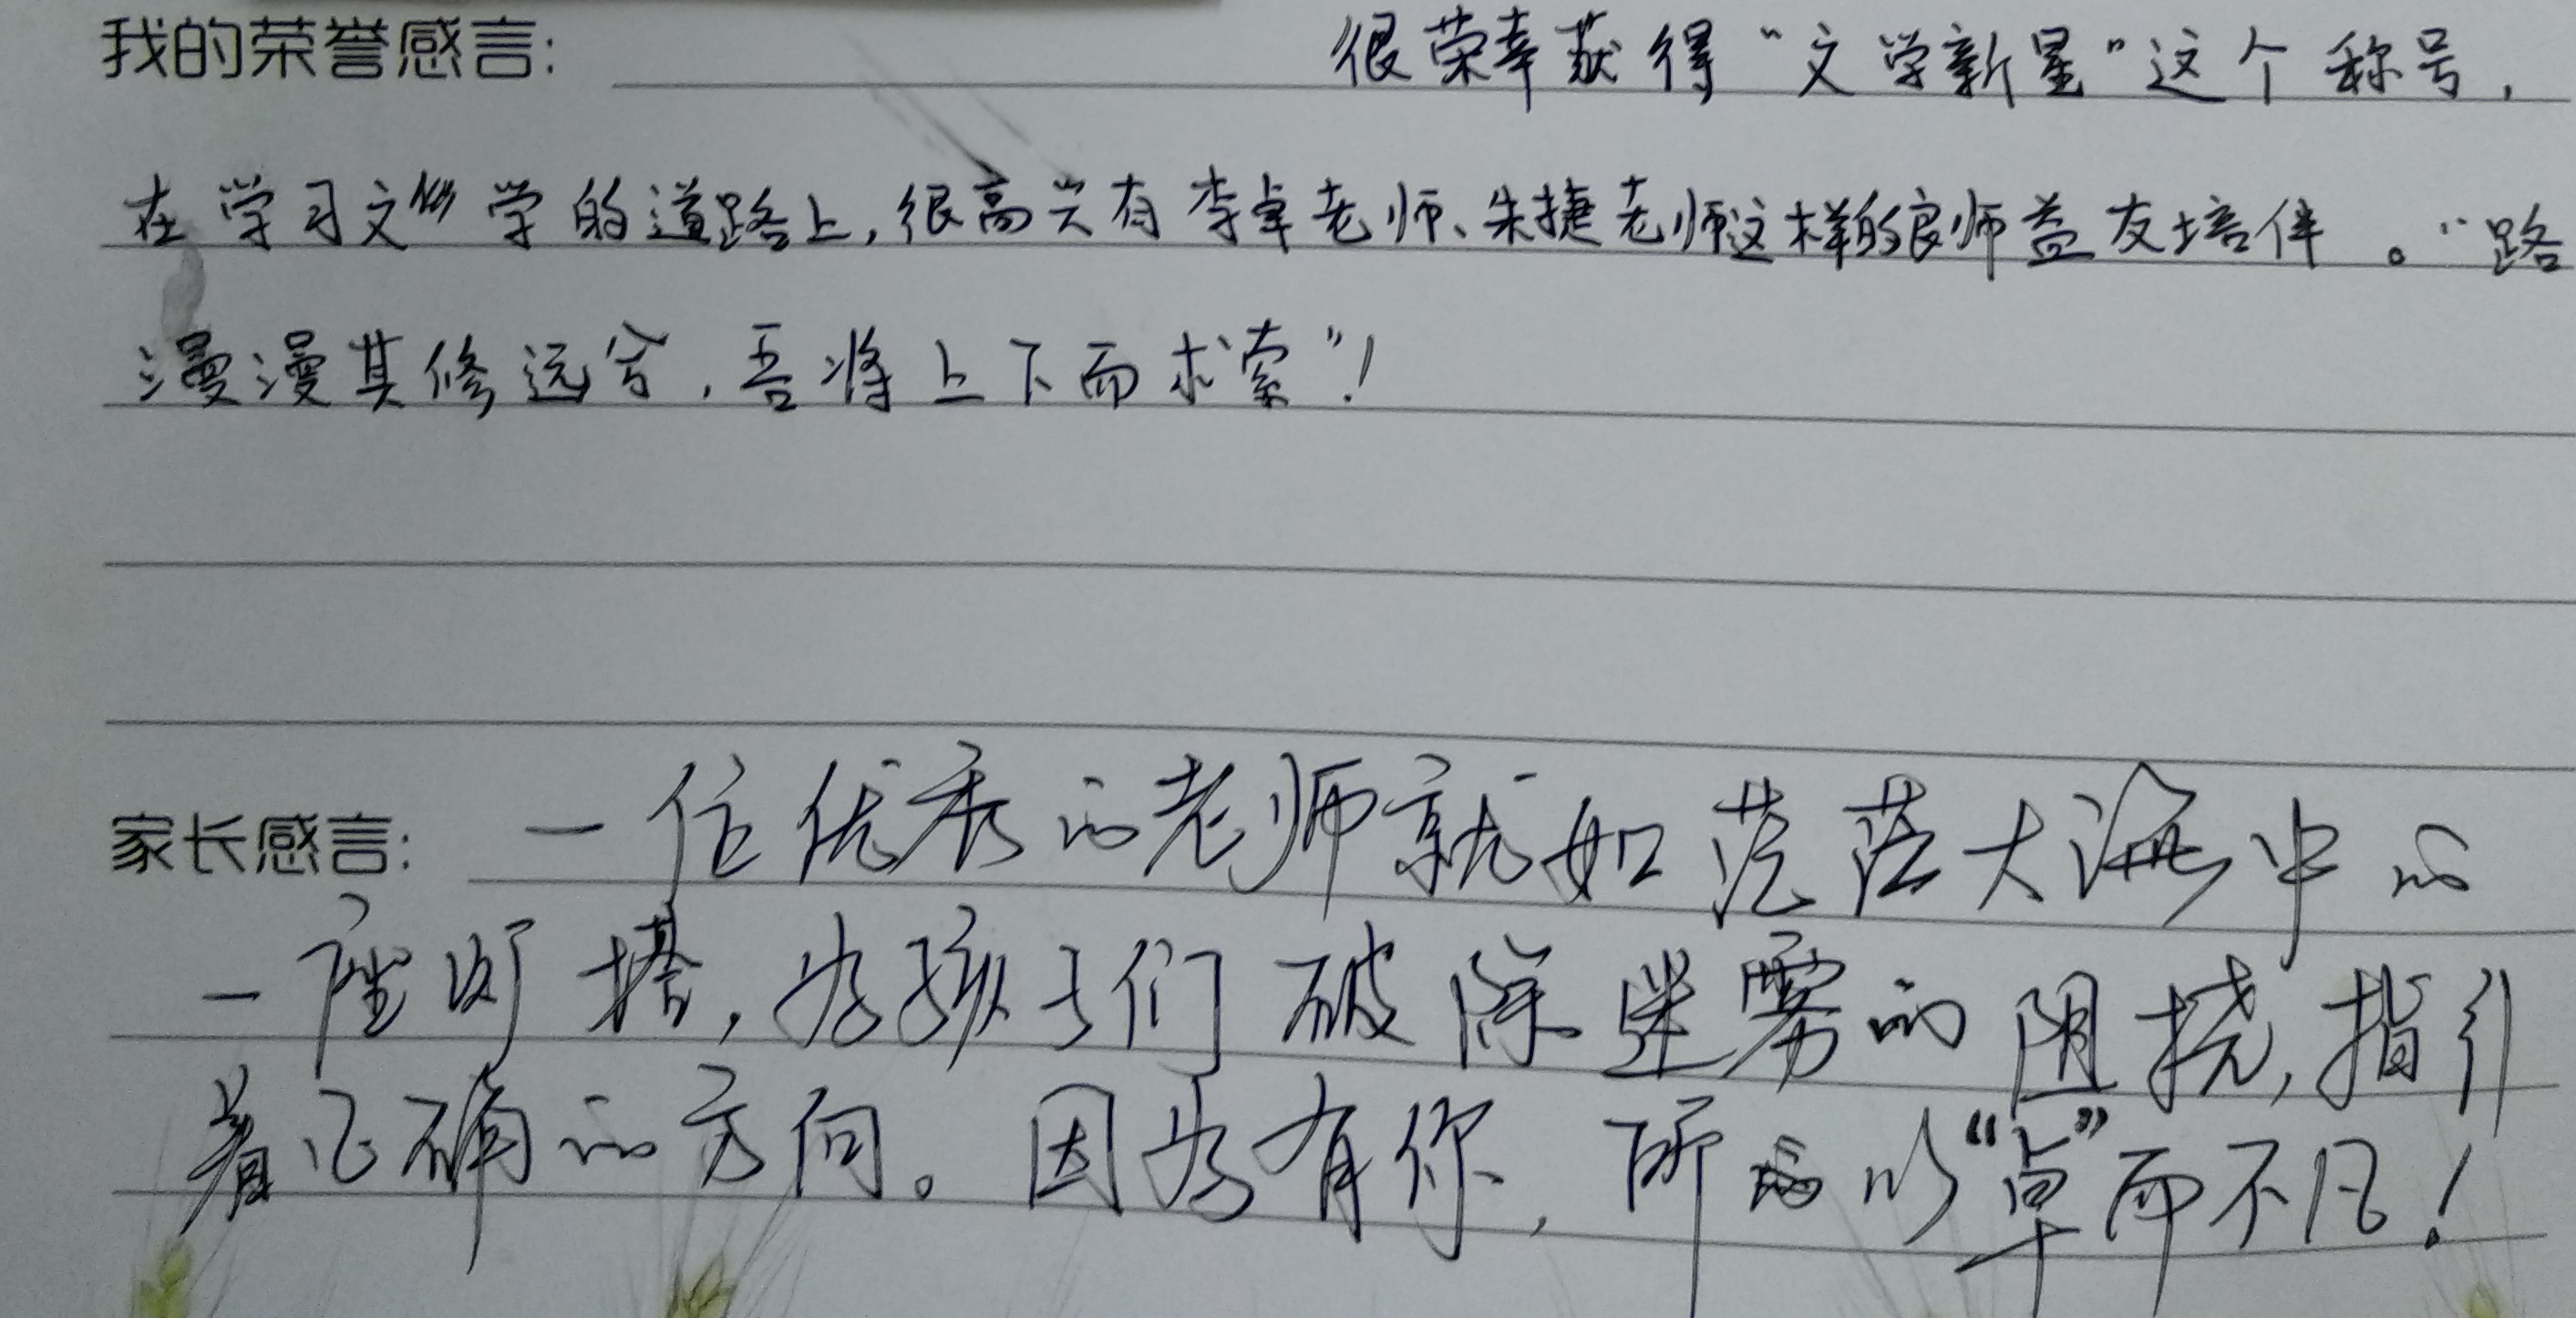 我的荣誉感言: 很荣幸获得“文学新星”这个称号,
在学习文学的道路上,很高兴有李卓老师、朱捷老师这样的良师益友培伴。“路
漫漫其修远兮,吾将上下而求索”!
家长感言: 一位优秀的老师就如茫茫大海中的
一座灯塔,为孩子们破除迷雾的阻挠,指引
着正确的方向。因为有你,所以“卓”而不凡!